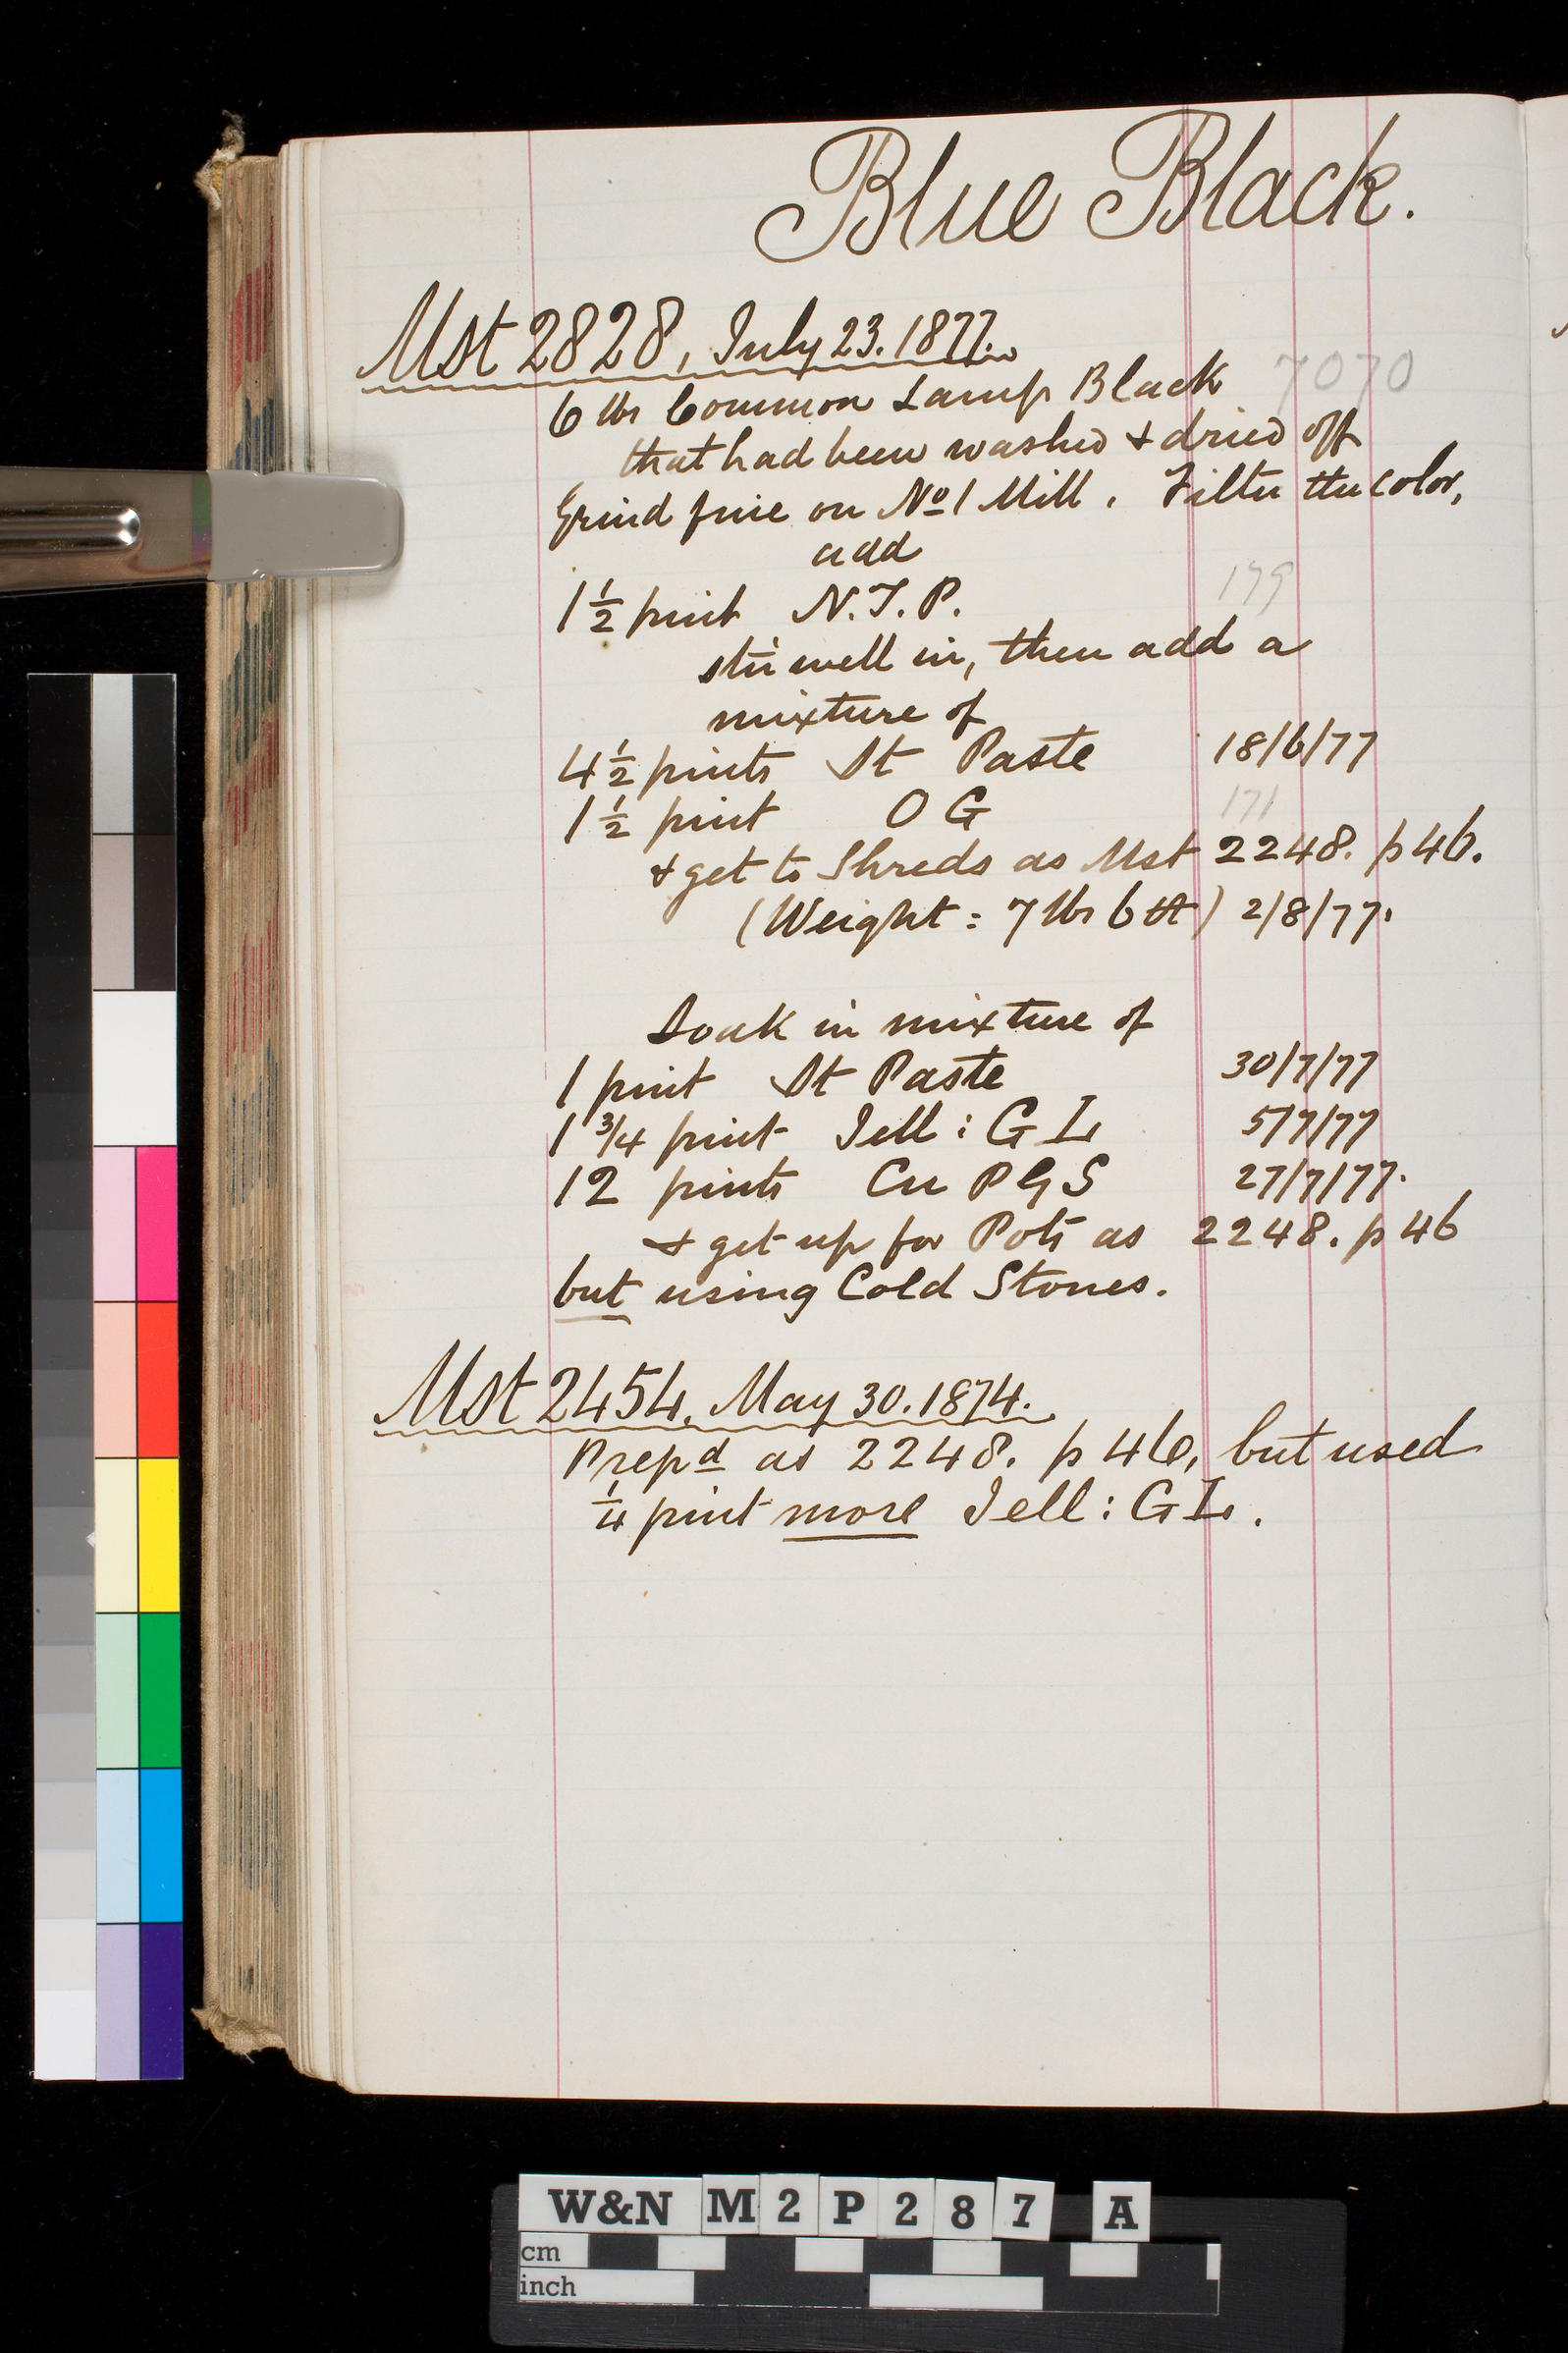 Blue Black.
Mst 2828, July 23. 1877.
6 lbs Common Lamp Black 7070
that had been washed & dried off
Grind fine on No 1 Mill. Filter the color,
add
1 1/2 pint N.T.P. 179
stir well in, then add a
mixture of
4 1/2 pints St Paste 18/6/77
1 1/2 pint O G 171
& get to Shreds as Mst 2248. p 46.
(Weight = 7 lbs 6 ) 2/8/77.
Soak in mixture of
1 pint St Paste 30/7/77
1 3/4 pint Jell: G L 5/7/77
12 pints Cu P G S 27/7/77.
& get up for Pots as 2248. p 46
but using Cold Stones.
Mst 2454. May 30. 1874.
Prepd as 2248. p 46, but used
1/4 pint more Jell: G L.
W&N M 2 P 2 8 7 A
cm
inch